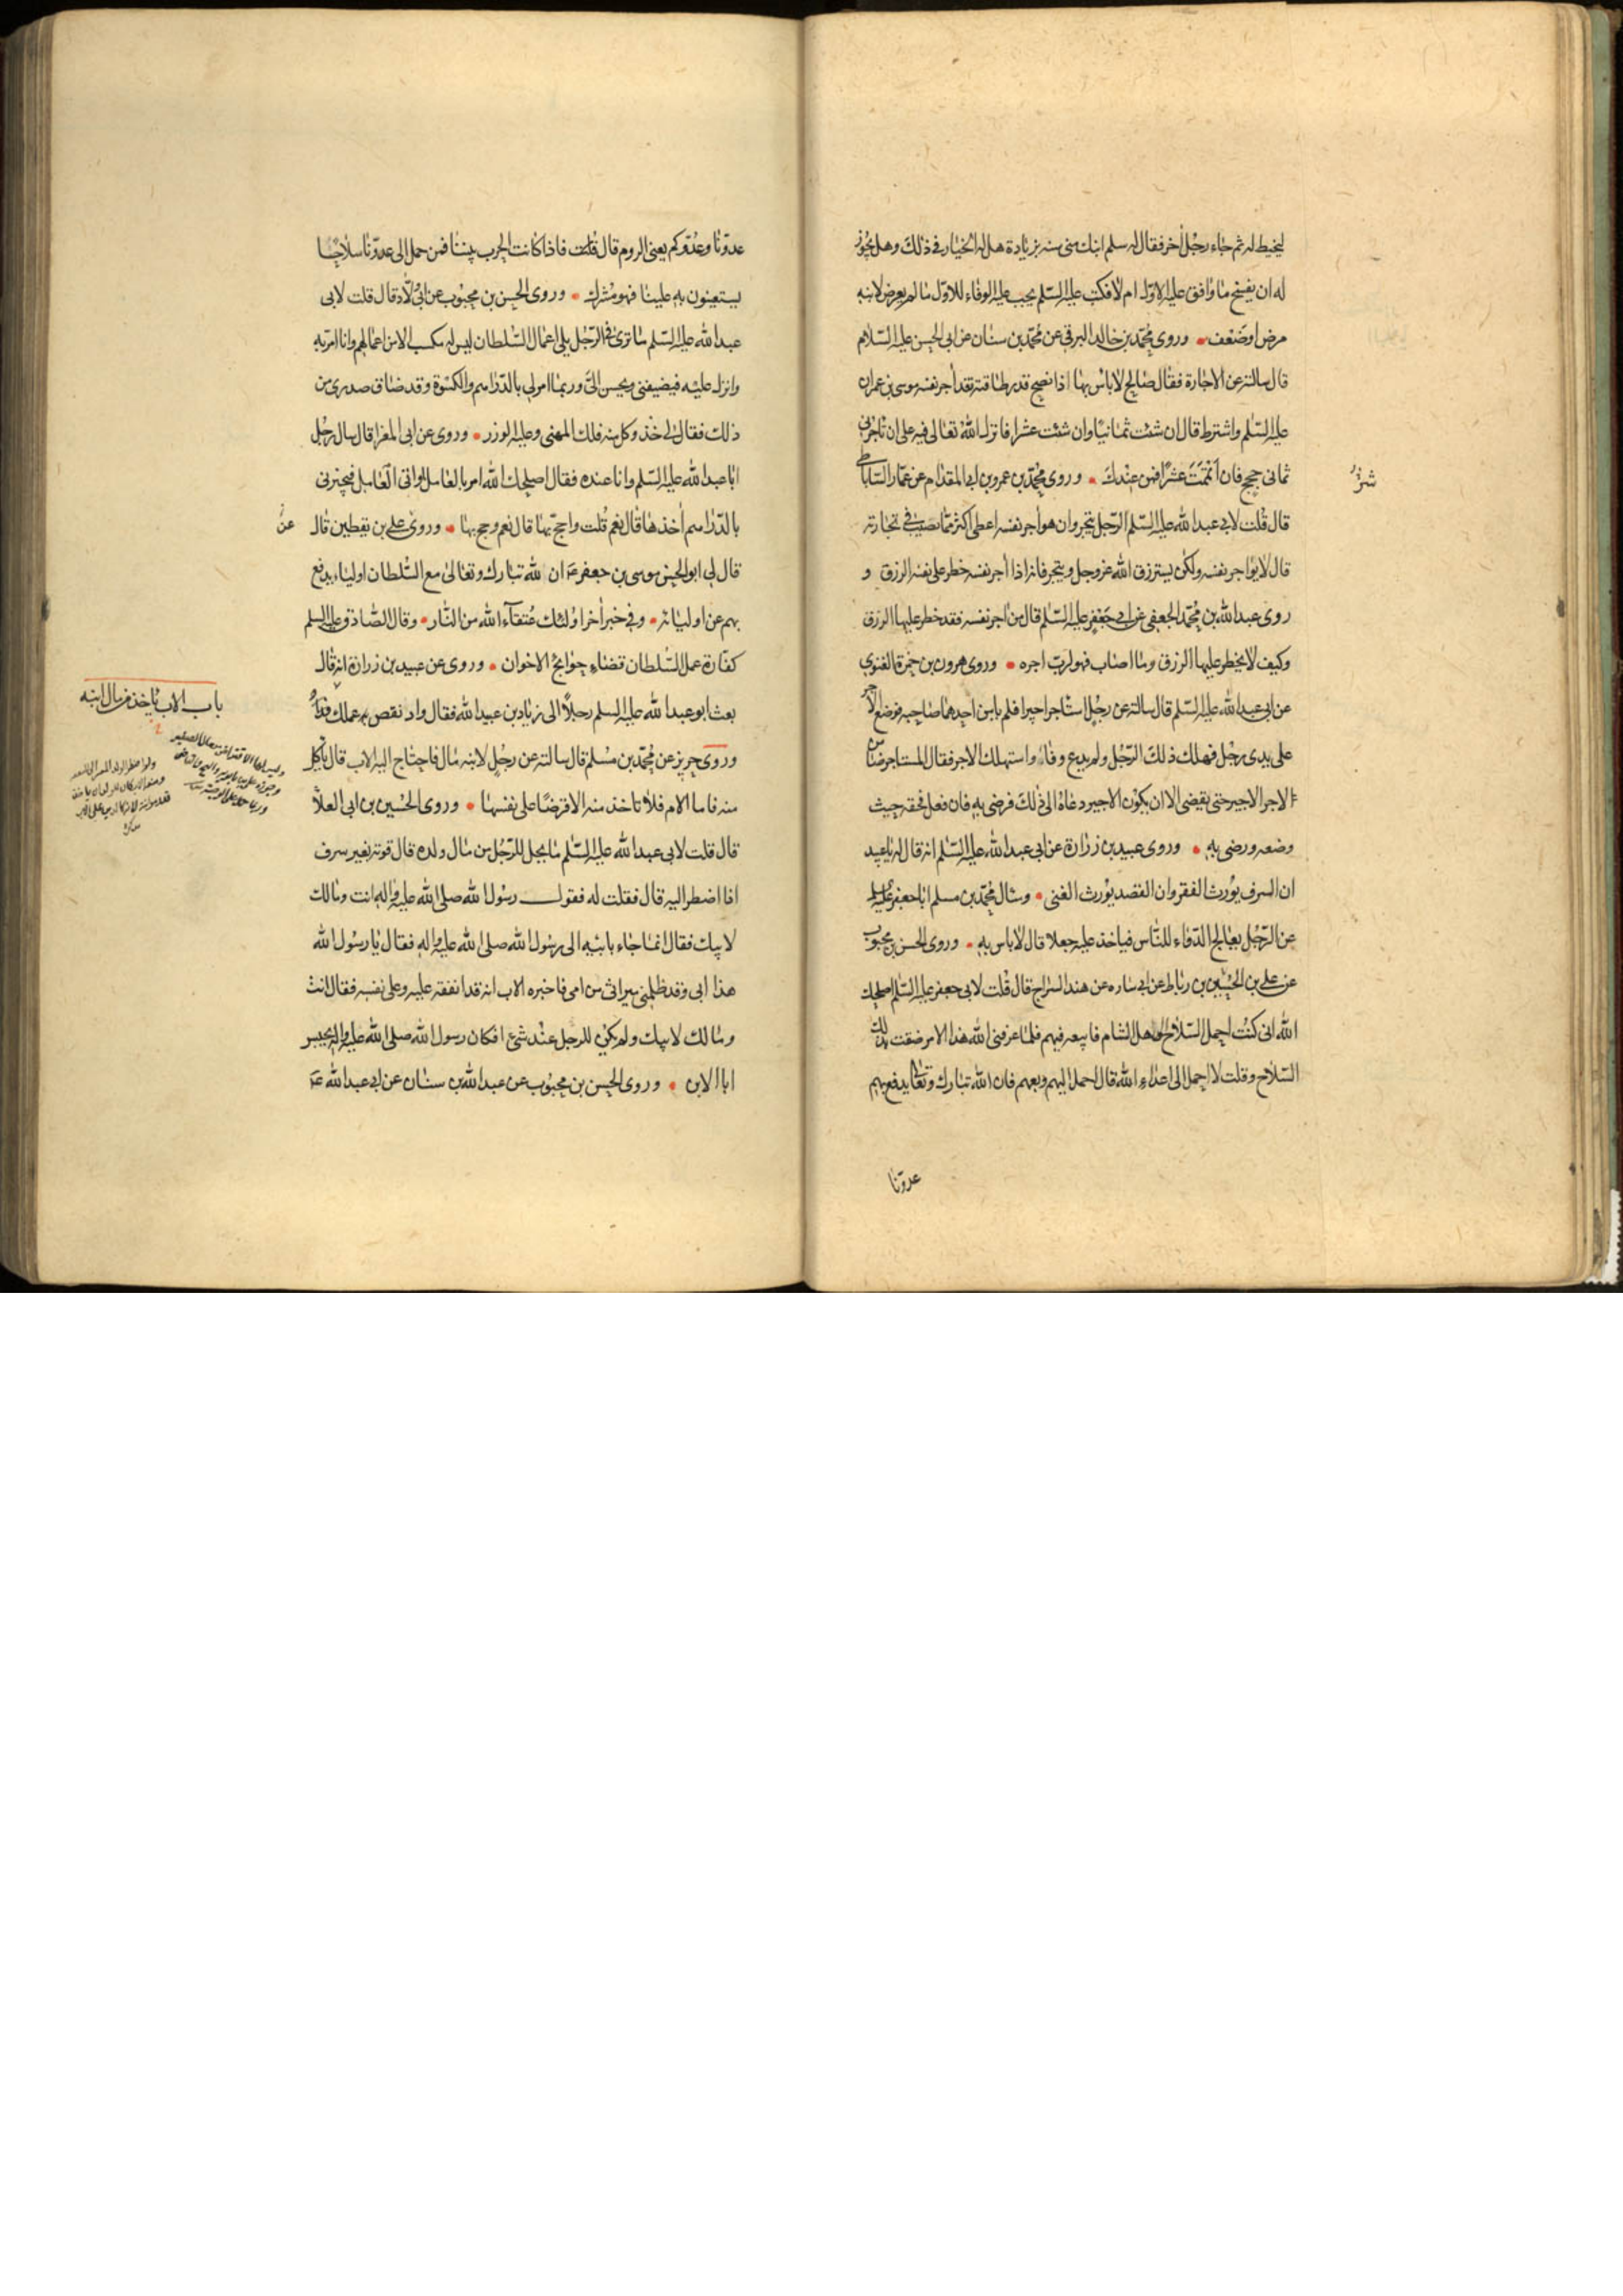 ليخيط له ثم جاء رجل آخر فقال له سلم ابنك منى سنة بزيادة هل له الخيار في ذلك وهل يجوز
له ان يفسخ ما وافق عليه الاول ام لا فكتب عليه السلم يجب عليه الوفاء للاول ما لم يعرض لابنه
مرض او ضعف وروى محمد بن خالد البرقى عن محمد بن سنان عن ابى الحسن عليه السلام
قال سالته عن الاجارة فقال صالح لا باس بها اذا نصح قدر طاقته فقد آجر نفسه موسى بن عمران
عليه السلم واشترط قال ان شئت ثمانيا وان شئت عشرا فانزل الله تعالى فيه على ان تاجرنى
ثمانى حجج فان اتممت عشرا فمن عندك وروى محمد بن عمرو بن ابى المقدام عن عمار الساباطى
قال قلت لابى عبد الله عليه السلم الرجل يتجر وان هو آجر نفسه اعطى اكثر مما يصيب في تجارته
قال لا يؤاجر نفسه ولكن يسترزق الله عز وجل ويتجر فانه اذا آجر نفسه حظر على نفسه الرزق و
روى عبد الله بن محمد الجعفى عن ابى جعفر عليه السلم قال من آجر نفسه فقد حظر عليها الرزق
وكيف لا يحظر عليها الرزق وما اصاب فهو لرب اجره وروى هرون بن حمزة الغنوى
عن ابى عبد الله عليه السلم قال سالته عن رجل استاجر اجيرا فلم يامن احدهما صاحبه فوضع الاجر
على يدى رجل فهلك ذلك الرجل ولم يدع وفاء واستهلك الاجر فقال المستاجر ضامن
الاجر الاجير حتى يقضى الا ان يكون الاجير دعاه الى ذلك فرضى به فان فعل فحقه حيث
وضعه ورضى به وروى عبيد بن زرارة عن ابى عبد الله عليه السلم انه قال له يا عبيد
ان السرف يورث الفقر وان القصد يورث الغنى وسال محمد بن مسلم ابا جعفر عليه السلم
عن الرجل يعالج الدواء للناس فياخذ عليه جعلا قال لا باس به وروى الحسن بن محبوب
عن على بن الحسين بن رباط عن ابى ساره عن هند السراج قال قلت لابى جعفر عليه السلم اصلحك
الله انى كنت احمل السلاح الى اهل الشام فابيعه فيهم فلما عرفنى الله هذا الامر ضقت بذلك
السلاح وقلت لا احمل الى اعداء الله قال احمل اليهم وبعهم فان الله تبارك وتعالى يدفع بهم
عدونا
عدونا وعدوكم يعنى الروم قال قلت فاذا كانت الحرب بيننا فمن حمل الى عدونا سلاحا
يستعينون به علينا فهو مشرك وروى الحسن بن محبوب عن ابى ولاد قال قلت لابى
عبد الله عليه السلم ما ترى في الرجل يلى اعمال السلطان ليس له مكسب الا من اعمالهم وانا امر به
وانزل عليه فيضيفنى ويحسن الى وربما امر لى بالدراهم والكسوة وقد ضاق صدرى من
ذلك فقال لى خذ وكل منه فلك المهنى وعليه الوزر وروى عن ابى المغرا قال سال رجل
ابا عبد الله عليه السلم وانا عنده فقال اصلحك الله امر بالعامل او آتى العامل فيجيزنى
بالدراهم آخذها قال نعم قلت واحج بها قال نعم وحج بها وروى على بن يقطين قال
عن
قال لى ابو الحسن موسى بن جعفر ع ان لله تبارك وتعالى مع السلطان اولياء يدفع
بهم عن اوليائه وفى خبر آخر اولئك عتقاء الله من النار وقال الصادق عليه السلم
كفارة عمل السلطان قضاء حوائج الاخوان وروى عن عبيد بن زرارة انه قال
بعث ابو عبد الله عليه السلم رجلا الى زياد بن عبيد الله فقال واد نقص عملك فداؤ
باب الاب ياخذ من مال ابنه
وروى حريز عن محمد بن مسلم قال سالته عن رجل لابنه مال فاحتاج اليه الاب قال ياكل
منه فاما الام فلا تاخذ منه الا قرضا على نفسها وروى الحسين بن ابى العلا
قال قلت لابى عبد الله عليه السلم ما يحل للرجل من مال ولده قال قوته بغير سرف
اذا اضطر اليه قال فقلت له فقول رسول الله صلى الله عليه واله انت ومالك
لابيك فقال انما جاء بابيه الى رسول الله صلى الله عليه واله فقال يا رسول الله
هذا ابى وقد ظلمنى ميراثى من امى فاخبره الاب انه قد انفقه عليه وعلى نفسه فقال انت
ومالك لابيك ولم يكن للرجل عنده شئ افكان رسول الله صلى الله عليه واله يحبس
ابا لابن وروى الحسن بن محبوب عن عبد الله بن سنان عن ابى عبد الله ع